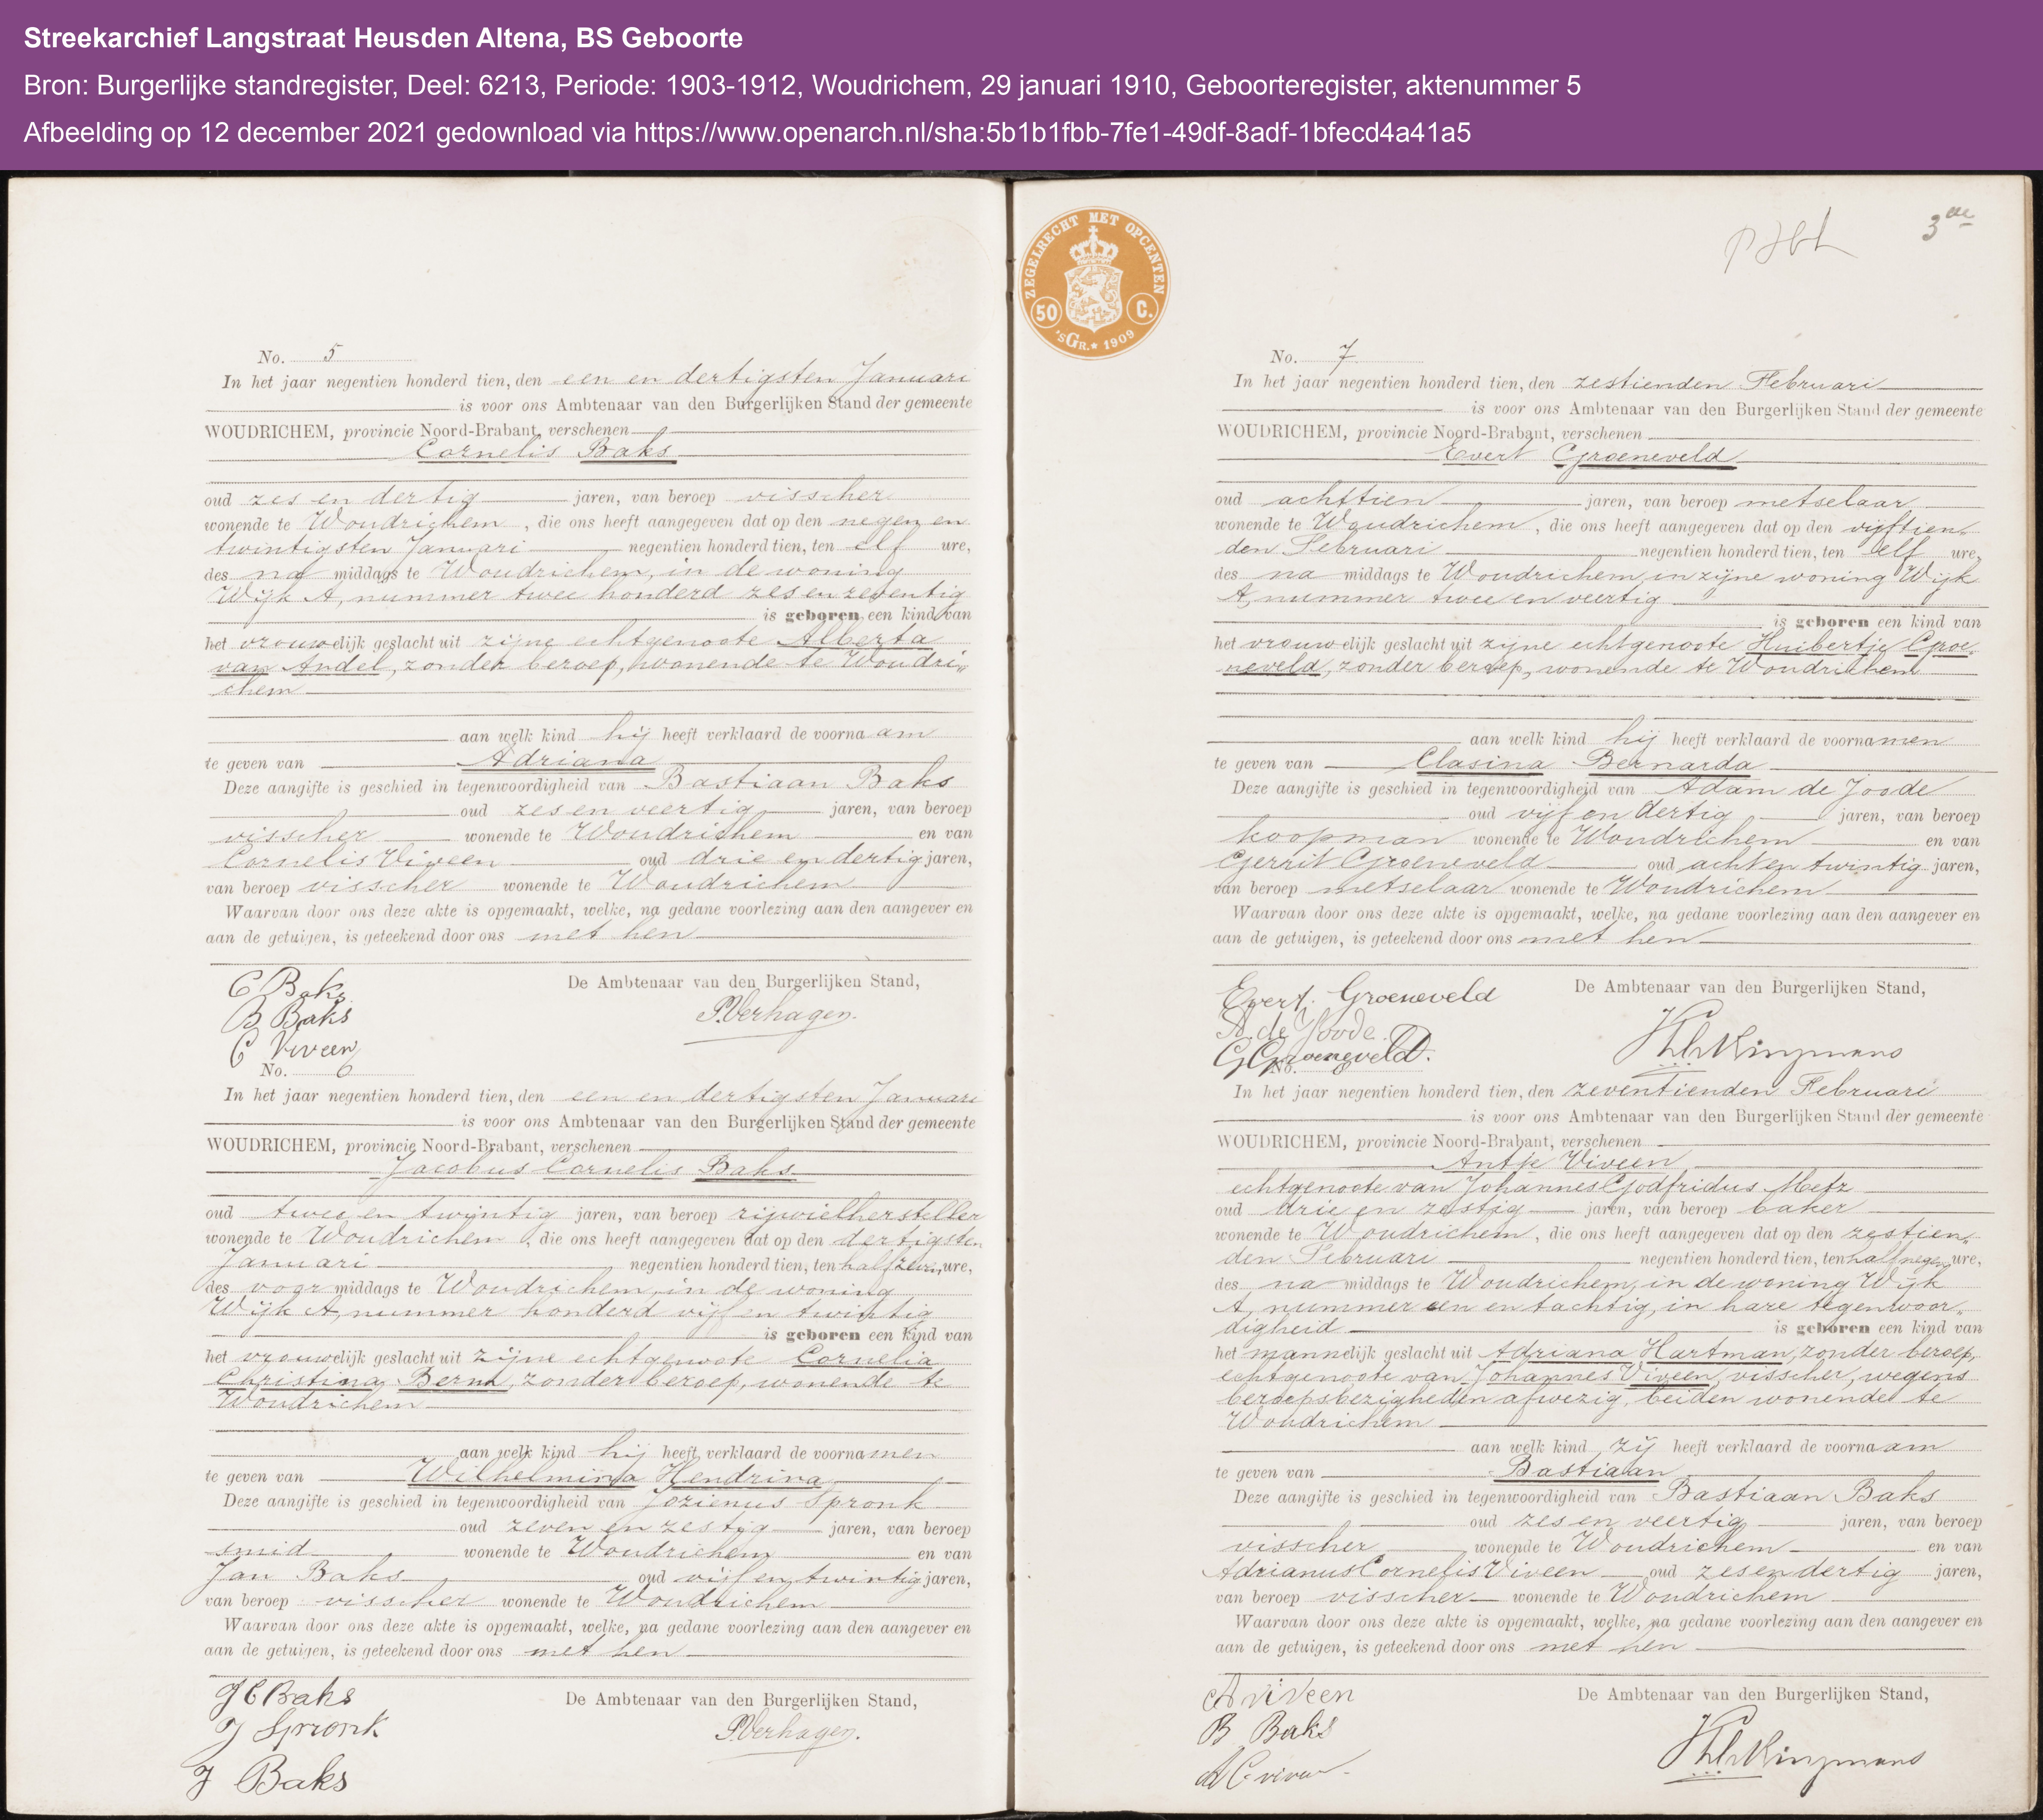 Streekarchief Langstraat Heusden Altena, BS Geboorte
Bron: Burgerlijke standregister, Deel: 6213, Periode: 1903-1912, Woudrichem, 29 januari 1910, Geboorteregister, aktenummer 5
Afbeelding op 12 december 2021 gedownload via https://www.openarch.nl/sha:5b1b1fbb-7fe1-49df-8adf-1bfecd4a41a5
No. 5
In het jaar negentien honderd tien, den een en dertigsten Januari
is voor ons Ambtenaar van den Burgerlijken Stand der gemeente
WOUDRICHEM, provincie Noord-Brabant, verschenen
Cornelis Baks
oud zes en dertig jaren, van beroep visscher
wonende te Woudrichem, die ons heeft aangegeven dat op den negen en
twintigsten Januari negentien honderd tien, ten elf ure,
des na middags te Woudrichem, in de woning
Wijk A, nummer twee honderd zes en zeventig
is geboren een kind van
het vrouwelijk geslacht uit zijne echtgenoote Alberta
van Andel, zonder beroep, wonende te Woudri„
chem
aan welk kind hij heeft verklaard de voornaam
te geven van Adriana
Deze aangifte is geschied in tegenwoordigheid van Bastiaan Baks
oud zes en veertig jaren, van beroep
visscher wonende te Woudrichem en van
Cornelis Viveen oud drie en dertig jaren,
van beroep visscher wonende te Woudrichem
Waarvan door ons deze akte is opgemaakt, welke, na gedane voorlezing aan den aangever en
aan de getuigen, is geteekend door ons met hen
De Ambtenaar van den Burgerlijken Stand,
C Baks
B Baks
C Viveen
P. Verhagen.
No. 6
In het jaar negentien honderd tien, den een en dertigsten Januari
is voor ons Ambtenaar van den Burgerlijken Stand der gemeente
WOUDRICHEM, provincie Noord-Brabant, verschenen
Jacobus Cornelis Baks
oud twee en twintig jaren, van beroep rijwielhersteller
wonende te Woudrichem, die ons heeft aangegeven dat op den dertigsten
Januari negentien honderd tien, ten half zeven ure,
des voor middags te Woudrichem, in de woning
Wijk A, nummer honderd vijf en twintig
is geboren een kind van
het vrouwelijk geslacht uit zijne echtgenoote Cornelia
Christina Bernt, zonder beroep, wonende te
Woudrichem
aan welk kind hij heeft verklaard de voornamen
te geven van Wilhelmina Hendrina
Deze aangifte is geschied in tegenwoordigheid van Jozienus Spronk
oud zeven en zestig jaren, van beroep
smid wonende te Woudrichem en van
Jan Baks oud vijf en twintig jaren,
van beroep visscher wonende te Woudrichem
Waarvan door ons deze akte is opgemaakt, welke, na gedane voorlezing aan den aangever en
aan de getuigen, is geteekend door ons met hen
De Ambtenaar van den Burgerlijken Stand,
J C Baks
J Spronk
J Baks
P. Verhagen.
ZEGELRECHT MET OPCENTEN
50 C.
'sGR. * 1909
3de
No. 7
In het jaar negentien honderd tien, den zestienden Februari
is voor ons Ambtenaar van den Burgerlijken Stand der gemeente
WOUDRICHEM, provincie Noord-Brabant, verschenen
Evert Groeneveld
oud achttien jaren, van beroep metselaar
wonende te Woudrichem, die ons heeft aangegeven dat op den vijftien„
den Februari negentien honderd tien, ten elf ure,
des na middags te Woudrichem, in zijne woning Wijk
A, nummer twee en veertig
is geboren een kind van
het vrouwelijk geslacht uit zijne echtgenoote Huibertje Groe„
neveld, zonder beroep, wonende te Woudrichem
aan welk kind hij heeft verklaard de voornamen
te geven van Clasina Bernarda
Deze aangifte is geschied in tegenwoordigheid van Adam de Joode
oud vijf en dertig jaren, van beroep
koopman wonende te Woudrichem en van
Gerrit Groeneveld oud acht en twintig jaren,
van beroep metselaar wonende te Woudrichem
Waarvan door ons deze akte is opgemaakt, welke, na gedane voorlezing aan den aangever en
aan de getuigen, is geteekend door ons met hen
De Ambtenaar van den Burgerlijken Stand,
Evert. Groeneveld
A. de Joode.
G Groeneveld.
No. 8
In het jaar negentien honderd tien, den zeventienden Februari
is voor ons Ambtenaar van den Burgerlijken Stand der gemeente
WOUDRICHEM, provincie Noord-Brabant, verschenen
Antje Viveen
echtgenoote van Johannes Godfridus Metz
oud drie en zestig jaren, van beroep baker
wonende te Woudrichem, die ons heeft aangegeven dat op den zestien„
den Februari negentien honderd tien, ten half negen ure,
des na middags te Woudrichem, in de woning Wijk
A, nummer een en tachtig, in hare tegenwoor„
digheid is geboren een kind van
het mannelijk geslacht uit Adriana Hartman, zonder beroep,
echtgenoote van Johannes Viveen, visscher, wegens
beroepsbezigheden afwezig, beiden wonende te
Woudrichem
aan welk kind zij heeft verklaard de voornaam
te geven van Bastiaan
Deze aangifte is geschied in tegenwoordigheid van Bastiaan Baks
oud zes en veertig jaren, van beroep
visscher wonende te Woudrichem en van
Adrianus Cornelis Viveen oud zes en dertig jaren,
van beroep visscher wonende te Woudrichem
Waarvan door ons deze akte is opgemaakt, welke, na gedane voorlezing aan den aangever en
aan de getuigen, is geteekend door ons met hen
De Ambtenaar van den Burgerlijken Stand,
A viveen
B Baks